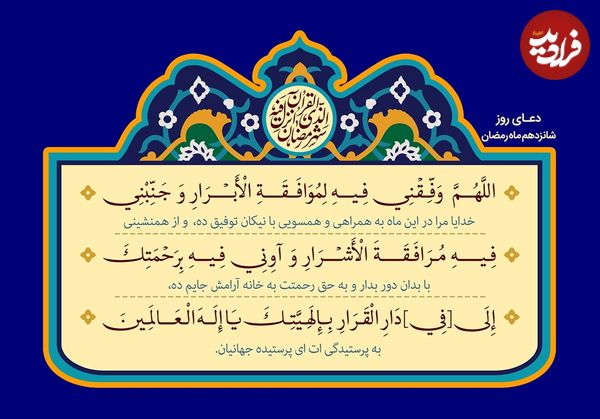 اخبار
فرادید
دعـای روز
شانزدهم‌ماه‌رمضان
شهر رمضان الذی انزل فیه القرآن
اللَّهُمَّ وَفِّقْنِي فِيهِ لِمُوَافَقَةِ الْأَبْرَارِ وَ جَنِّبْنِي
خدایا مرا در این ماه به همراهی و همسویی با نیکان توفیق ده، و از همنشینی
فِيهِ مُرَافَقَةَ الْأَشْرَارِ وَ آوِنِي فِيهِ بِرَحْمَتِكَ
با بدان دور بدار و به حق رحمتت به خانه آرامش جایم ده،
إِلَى [فِي] دَارِ الْقَرَارِ بِإِلَهِيَّتِكَ يَا إِلَهَ الْعَالَمِينَ
به پرستیدگی ات ای پرستیده جهانیان.